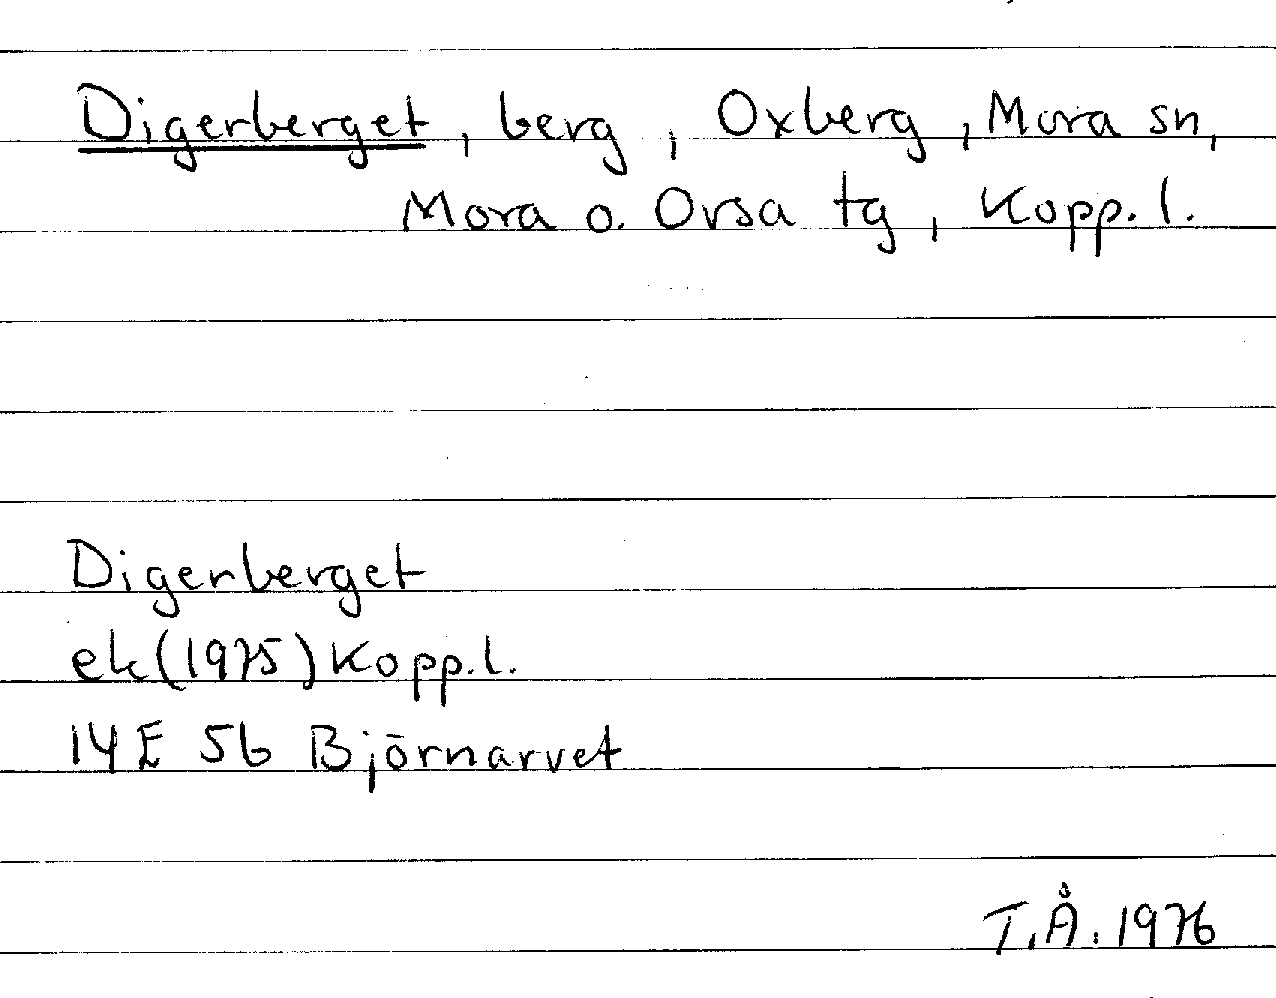 Digerberget, berg, Oxberg, Mora sn,
Mora o. Orsa tg, Kopp. l.
Digerberget
ek(1975) Kopp.l.
14E 5b Björnarvet
T.Å. 1976